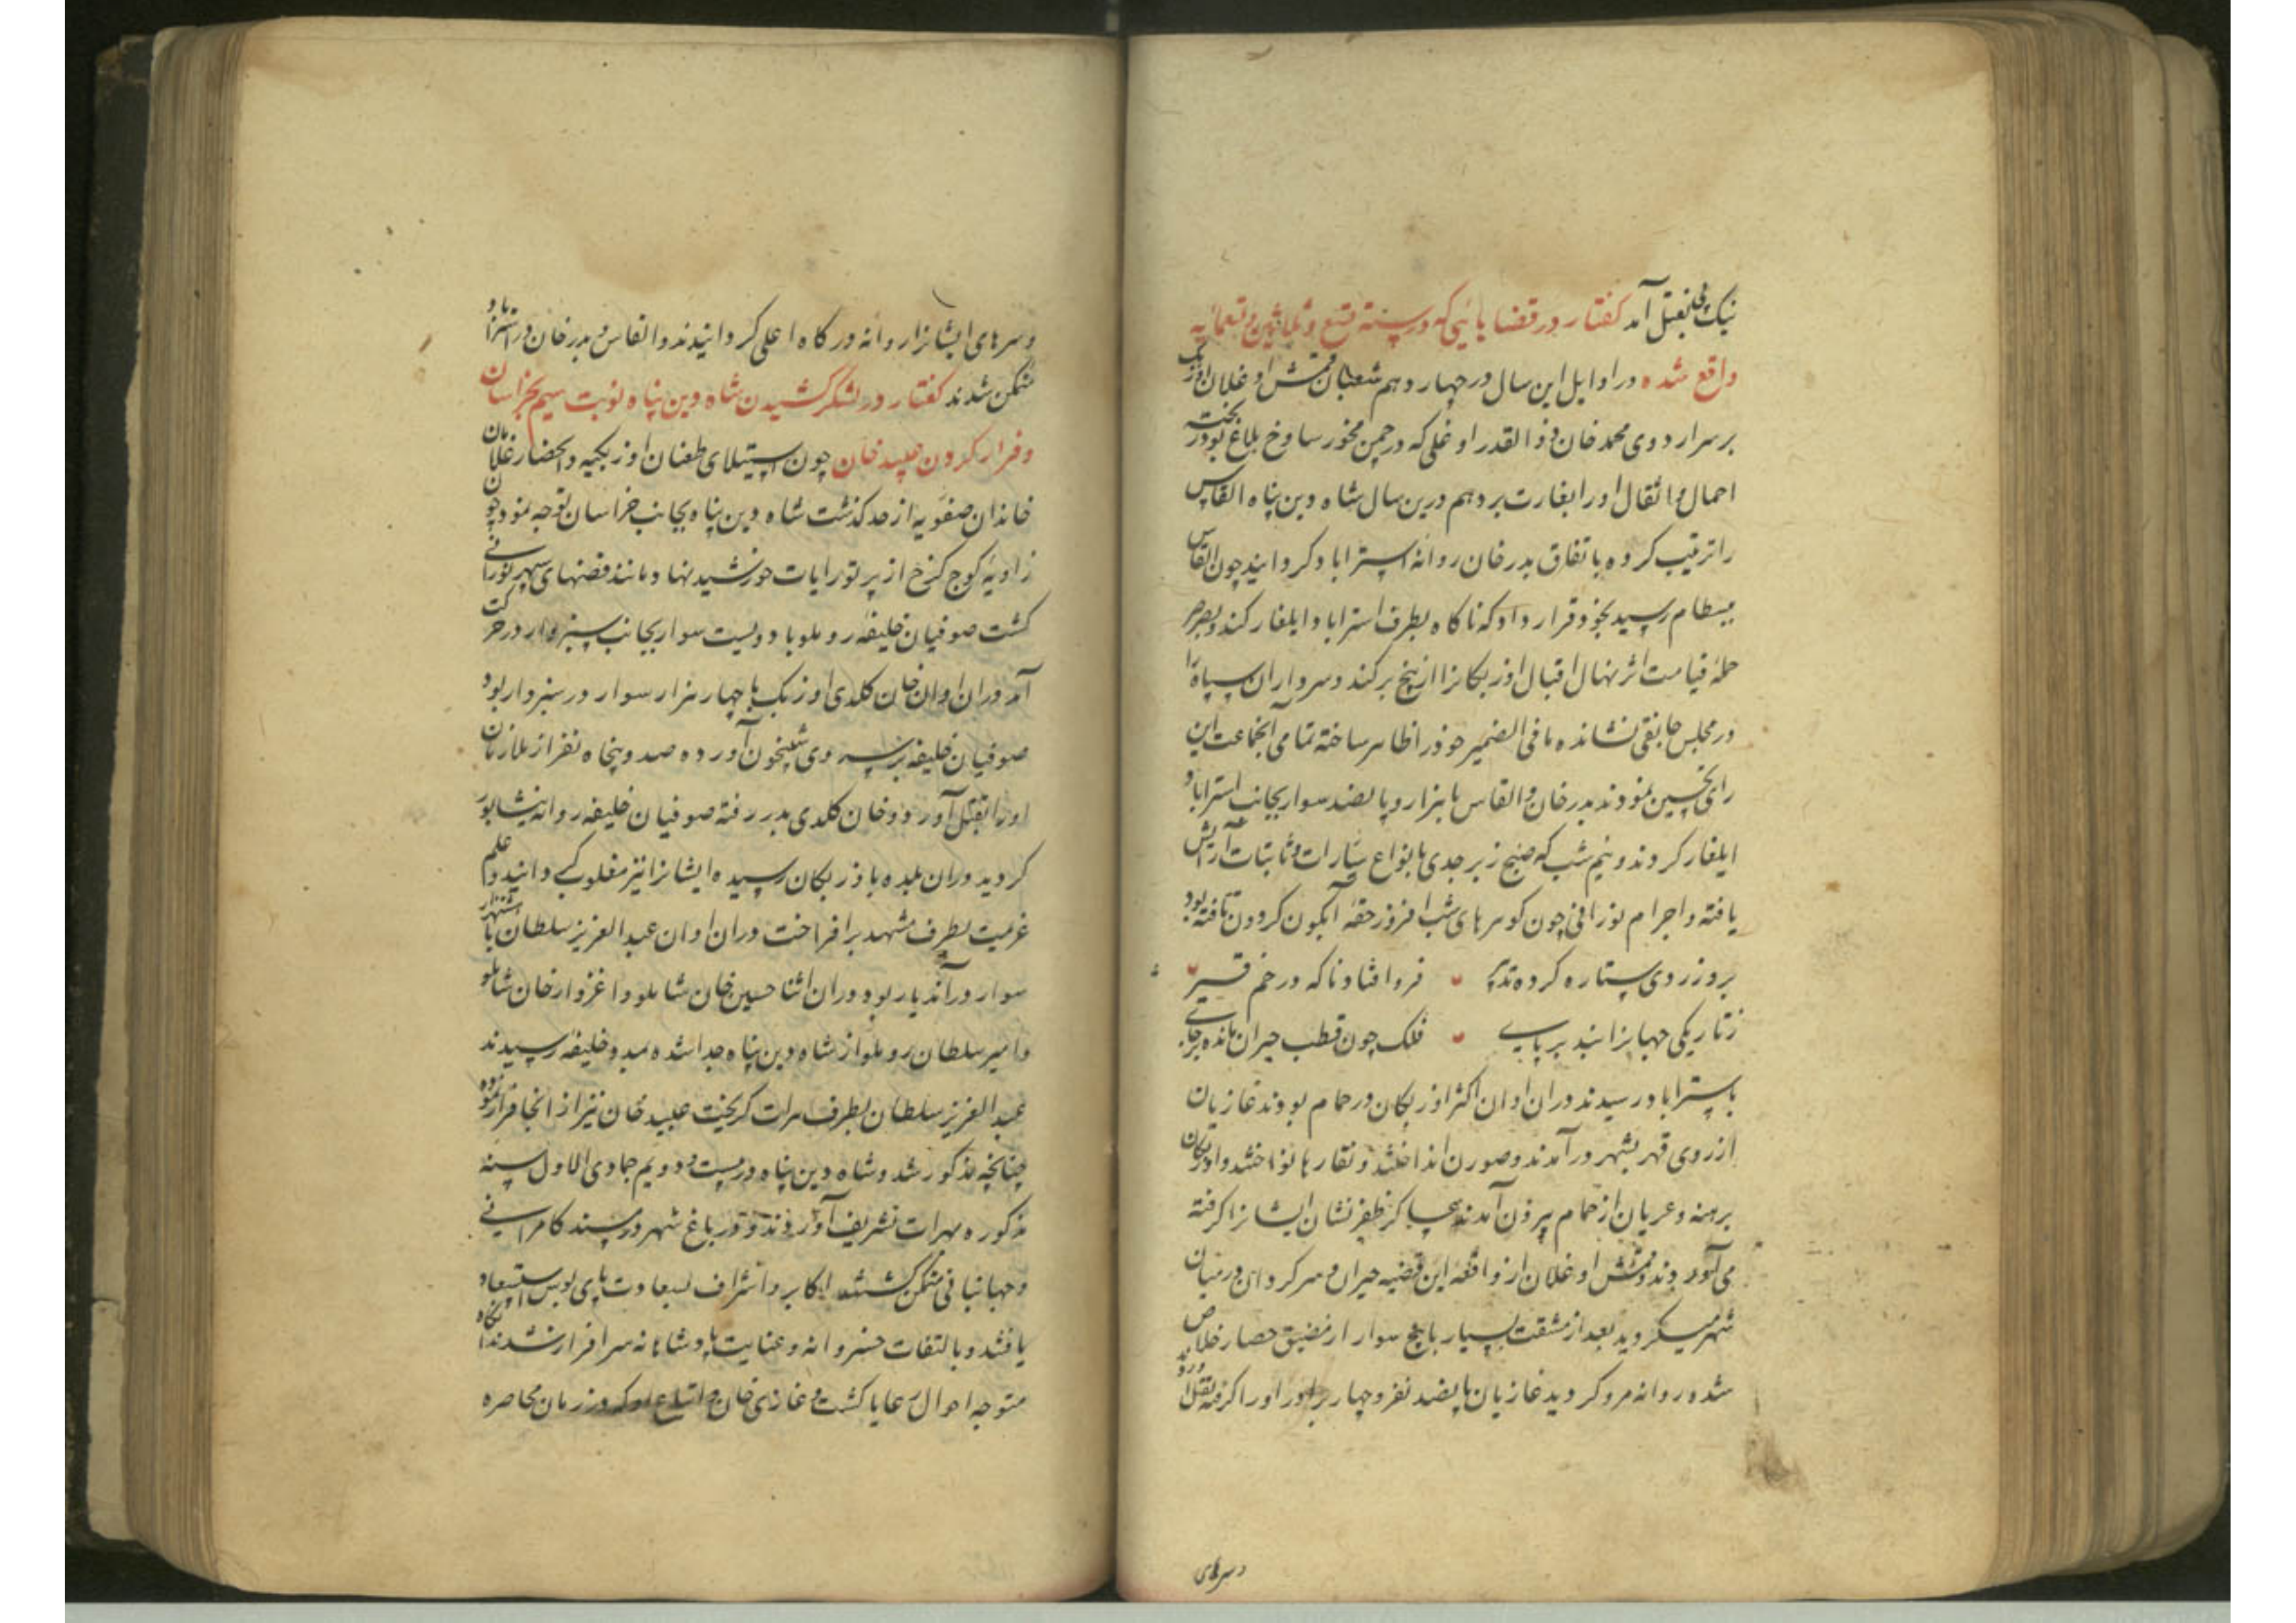 نیک پی بقتل آمد گفتار در قضایائی که در سنه تسع و ثلاثین و تسعمائه
واقع شده در اوایل این سال در چهاردهم شعبان قمش اوغلان اوزبک
بر سر اردوی محمد خان ذوالقدر اوغلی که در چمن مخور ساوخ بلاغ بود ریخته
احمال و اثقال او را بغارت برد هم درین سال شاه دین پناه القاس
را ترتیب کرده باتفاق بدر خان روانه استراباد کردانید چون القاس
ببسطام رسید بخود قرار داد که ناگاه بطرف استراباد ایلغار کند و بصرصر
حمله قیامت اثر نهال اقبال اوزبکانرا از بیخ برکند و سرداران سپاه را
در مجلس جانقی نشانده ما فی الضمیر خود را ظاهر ساخته تمامی آنجماعت این
رای تحسین نمودند بدر خان و القاس با هزار و پانصد سوار بجانب استراباد
ایلغار کردند و نیم شب که صبح زبرجدی بانواع سیارات و ثابتات آرایش
یافته و اجرام نورانی چون کوهرهای شب افروز حقه آبکون کردون تافته بود
بروز روی ستاره کرده تدبیر فرو افتاد ناکه در خم قیر
ز تاریکی جهانرا بند بر پای فلک چون قطب حیران مانده بر جای
باستراباد رسیدند در ان اوان اکثر اوزبکان در حمام بودند غازیان
از روی قهر بشهر در آمدند و صورن انداختند و نقارها نواختند و اوزبکان
برهنه و عریان از حمام بیرون آمدند عساکر ظفر نشان ایشانرا کرفته
می آوردند و قمش اوغلان از واقعه این قضیه حیران و سرکردان در میان
شهر میگردید بعد از مشقت بسیار با پنج سوار از مضیق حصار خلاص
شده روانه مرو کردید غازیان پانصد نفر و چهار برابر او را کرفته بقتل آوردند
و سرهای
و سرهای ایشانرا روانه درگاه اعلی کردانیدند و القاس و بدر خان در استراباد
متمکن شدند گفتار در لشکر کشیدن شاه دین پناه نوبت سیم بخراسان
و فرار کردن عبید خان چون استیلای طغیان اوزبکیه و انحصار غلامان
خاندان صفویه از حد کذشت شاه دین پناه بجانب خراسان توجه نمود چون
زاویه کوج کرخ از پرتو رایات خورشید نها و مانند فضهای سپهر نورانی
کشت صوفیان خلیفه روملو با دویست سوار بجانب سبزوار در حرکت
آمد در ان اوان خان کلدی اوزبک با چهار هزار سوار در سبزوار بود
صوفیان خلیفه بر سر وی شبیخون آورده صد و پنجاه نفر از ملازمان
او را بقتل آورد و خان کلدی بدر رفته صوفیان خلیفه روانه نیشابور
کردید در ان بلده باوزبکان رسیده ایشانرا نیز مغلوب کردانید و علم
عزیمت بطرف مشهد برافراخت در ان اوان عبد العزیز سلطان با هشت هزار
سوار در آن دیار بود در ان اثنا حسین خان شاملو و اغزوار خان شاملو
و امیر سلطان روملو از شاه دین پناه جدا شده بمدد خلیفه رسیدند
عبد العزیز سلطان بطرف هرات کریخت عبید خان نیز از انجا فرار نموده
چنانچه مذکور شد و شاه دین پناه در بیست و دویم جمادی الاول سنه
مذکوره بهرات تشریف آوردند و در باغ شهر در مسند کامرانی
و جهانبانی متمکن کشتند اکابر و اشراف بسعادت پای بوس استسعاد
یافتند و بالتفات خسروانه و عنایت پادشاهانه سرافراز شدند آنگاه
متوجه احوال رعایا کشت و غازی خان و اتباع او که در زمان محاصره